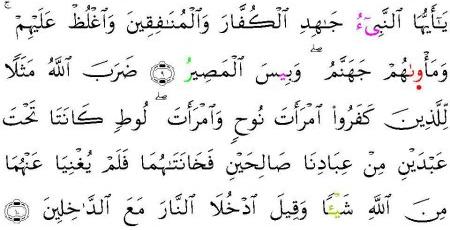 يَٰٓأَيُّهَا ٱلنَّبِيٓءُ جَٰهِدِ ٱلْكُفَّارَ وَٱلْمُنَٰفِقِينَ وَٱغْلُظْ عَلَيْهِمْۚ
وَمَأْوَىٰهُمْ جَهَنَّمُۖ وَبِيسَ ٱلْمَصِيرُ ۝٩ ضَرَبَ ٱللَّهُ مَثَلًا
لِّلَّذِينَ كَفَرُوا۟ ٱمْرَأَتَ نُوحٍ وَٱمْرَأَتَ لُوطٍۖ كَانَتَا تَحْتَ
عَبْدَيْنِ مِنْ عِبَادِنَا صَٰلِحَيْنِ فَخَانَتَاهُمَا فَلَمْ يُغْنِيَا عَنْهُمَا
مِنَ ٱللَّهِ شَيْـًٔا وَقِيلَ ٱدْخُلَا ٱلنَّارَ مَعَ ٱلدَّٰخِلِينَ ۝١٠